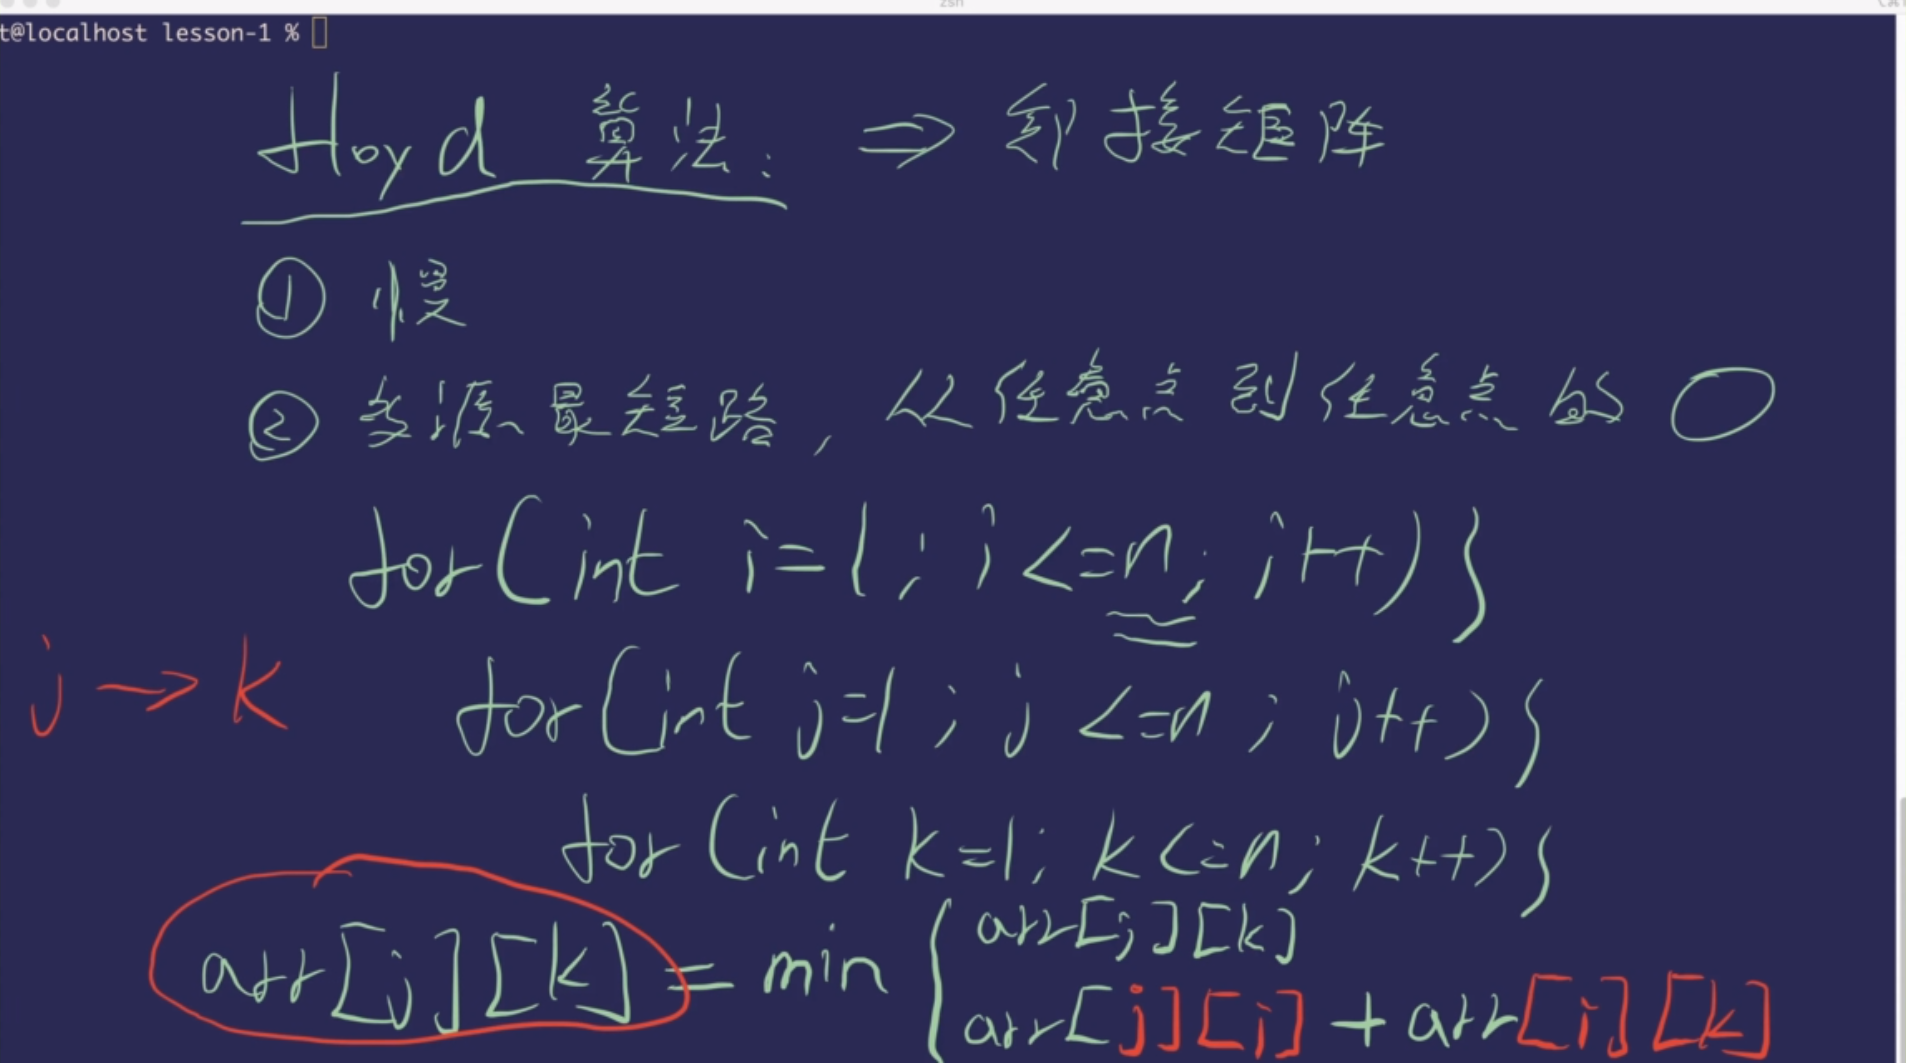 zsh
t@localhost lesson-1 %
Floyd 算法: ⇒ 邻接矩阵
① 慢
② 多源最短路, 从任意点到任意点的
for(int i=1; i<=n; i++){
j → k
for(int j=1; j<=n; j++){
for(int k=1; k<=n; k++){
arr[j][k] = min { arr[j][k]
arr[j][i] + arr[i][k]